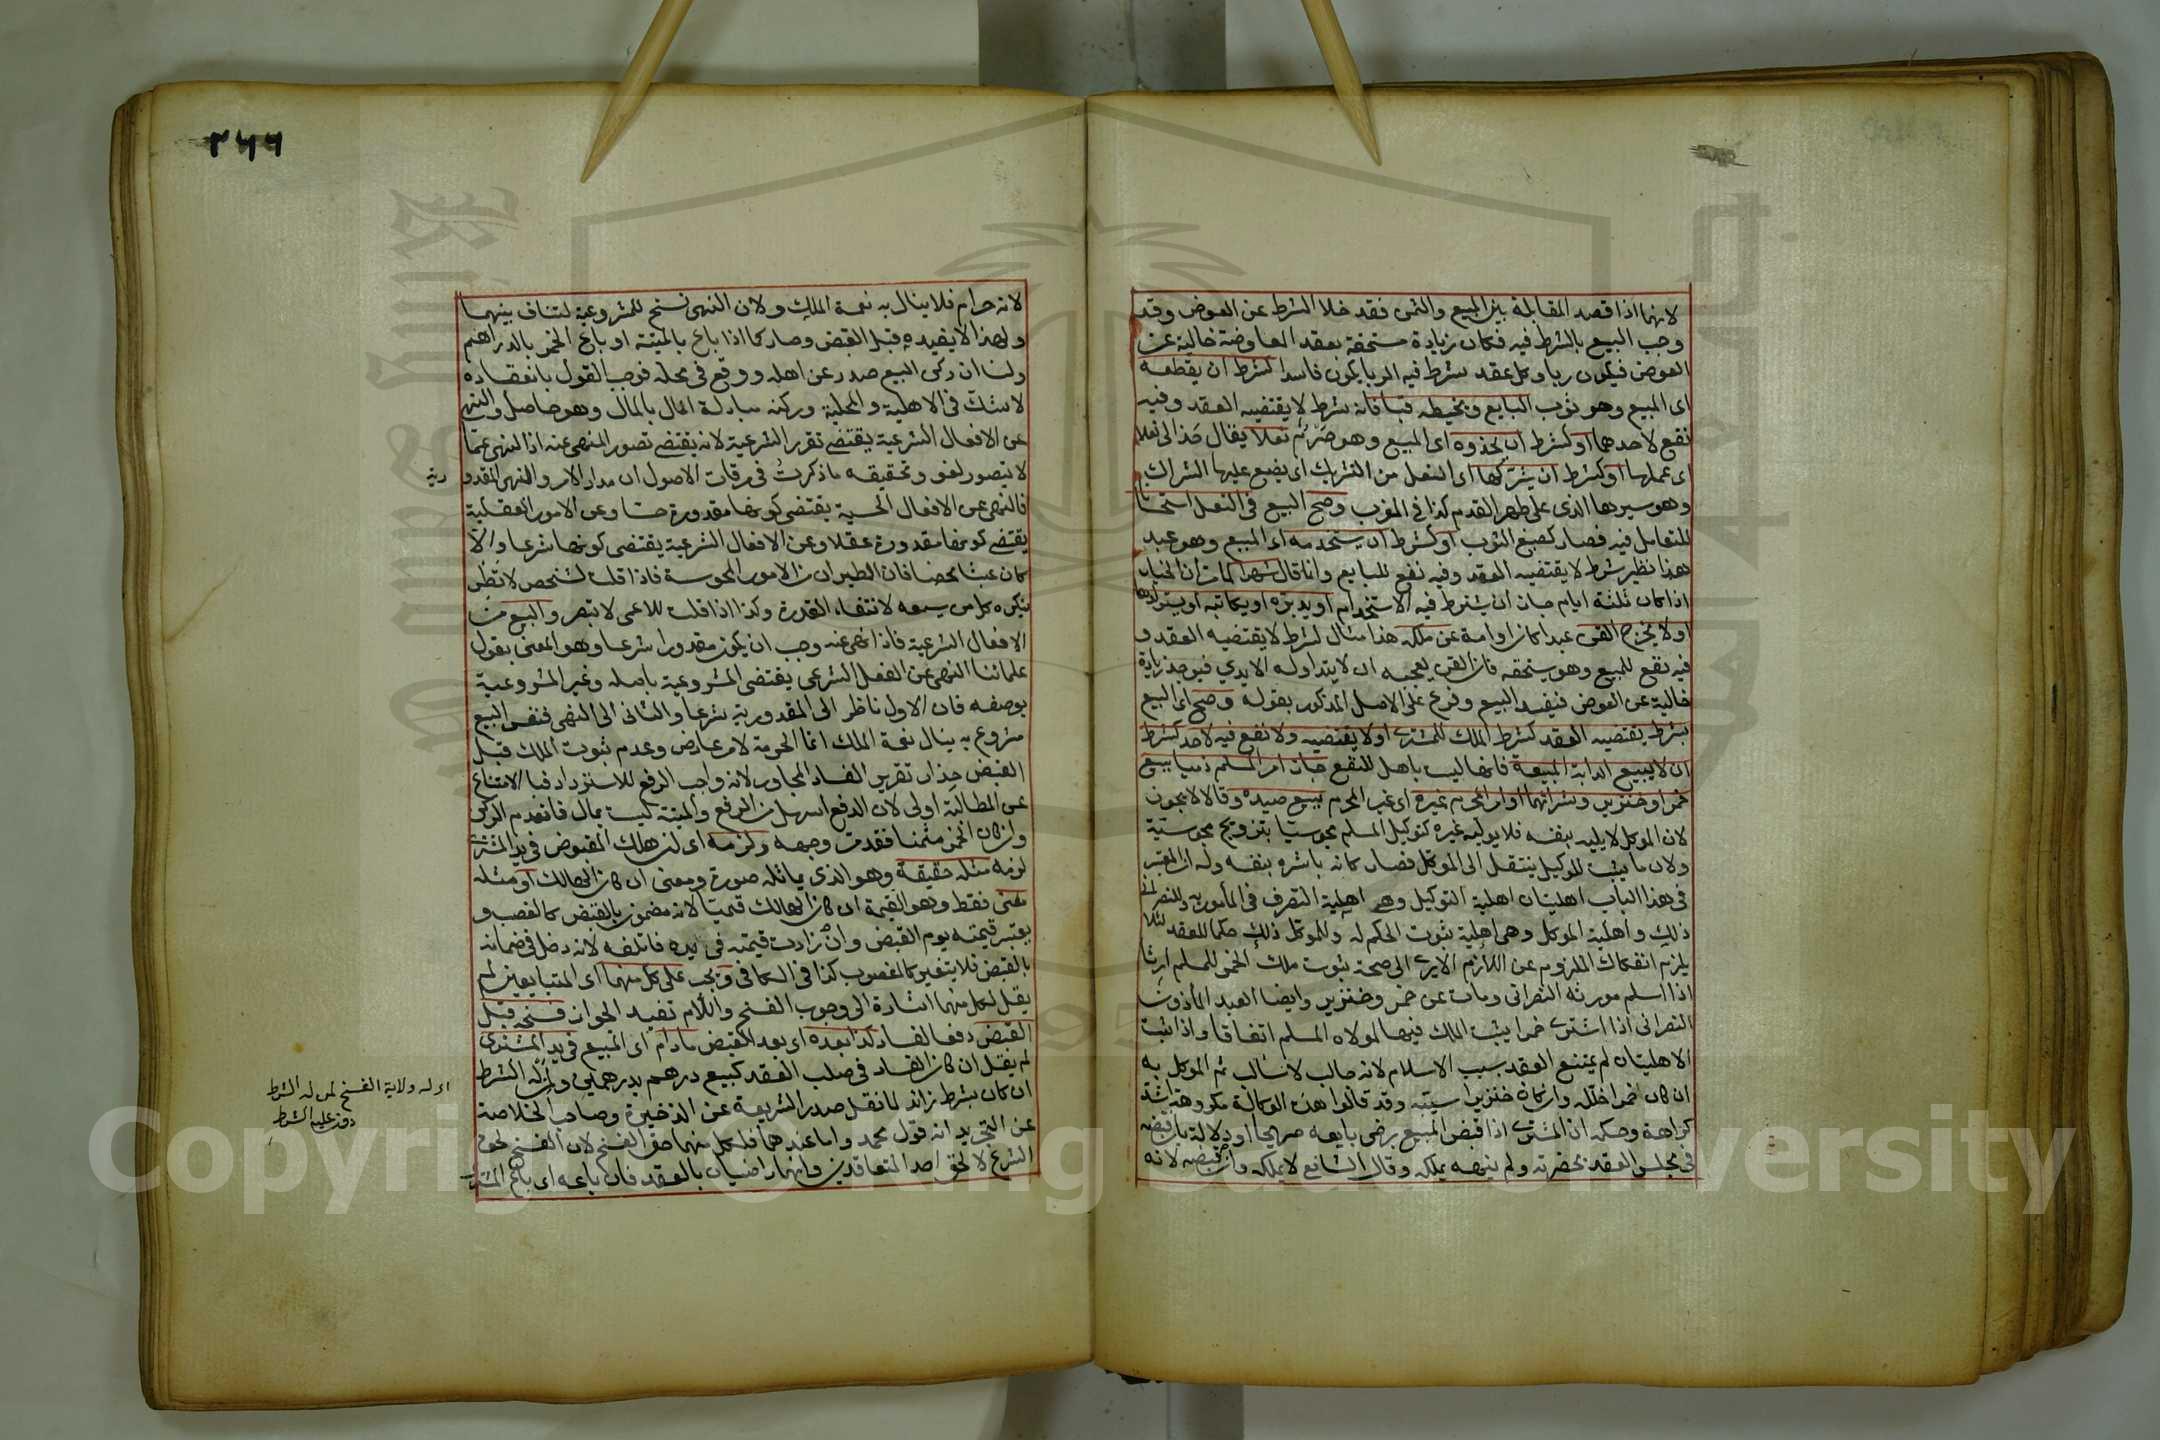 لانهما اذا قصد المقابلة بين المبيع والثمن فقد خلا الشرط عن العوض وقد
وجب البيع بالشرط فيه فكان زيادة مستحقة بعقد المعاوضة خالية عن
العوض فيكون ربا وكل عقد شرط فيه الربا يكون فاسدا كشرط ان يقطعه
اى المبيع وهو ثوب البايع ويخيطه قباء فانه شرط لا يقتضيه العقد وفيه
نفع لاحدهما او كشرط ان يحذوه اى المبيع وهو صرم نعلا يقال حذا لى نعلا
اى عملها او كشرط ان يشركها اى النعل من التشريك اى يضع عليها الشراك
وهو سيرها الذى على ظهر القدم كذا فى المغرب وصح البيع فى النعل استحسانا
للتعامل فيه فصار كصبغ الثوب او كشرط ان يستخدمه اى المبيع وهو عبد
هذا نظير شرط لا يقتضيه العقد وفيه نفع للبايع وانما قال شهرا لما مر ان الخيار
اذا كان ثلثة ايام جاز ان يشترط فيه الاستخدام او يدبره او يكاتبه او يستولدها
او لا يخرج القن عبدا كان او امة عن ملكه هذا مثال لشرط لا يقتضيه العقد و
فيه نفع للمبيع وهو يستحقه فان القن يعجبه ان لا يتداوله الايدي فيوجد زيادة
خالية عن العوض فيفسد البيع وفرع على الاصل المذكور بقوله وصح اى البيع
بشرط يقتضيه العقد كشرط الملك للمشترى او لا يقتضيه ولا نفع فيه لاحد كشرط
ان لا يبيع الدابة المبيعة فانها ليست باهل للنفع جاز امر المسلم ذميا ببيع
خمر او خنزير وشرائهما او امر المحرم غيره اى غير المحرم ببيع صيده وقالا لا يجوز
لان الموكل لا يليه بنفسه فلا يوليه غيره كتوكيل المسلم مجوسيا بتزويج مجوسية
ولان ما يثبت للوكيل ينتقل الى الموكل فصار كانه باشره بنفسه وله ان المعتبر
فى هذا الباب اهليتان اهلية التوكيل وهى اهلية التصرف فى المأمور به وللنصرانى
ذلك واهلية الموكل وهى اهلية ثبوت الحكم له وللموكل ذلك حكما للعقد لئلا
يلزم انفكاك الملزوم عن اللازم الا يرى الى صحة ثبوت ملك الخمر للمسلم ارثا
اذا اسلم مورثه النصرانى ومات عن خمر وخنزير وايضا العبد المأذون
النصرانى اذا اشترى خمرا يثبت الملك فيها لمولاه المسلم اتفاقا واذا ثبت
الاهليتان لم يمتنع العقد بسبب الاسلام لانه جالب لا سالب ثم الموكل به
ان كان خمرا خلله وان كان خنزيرا سيبه وقد قالوا هذه الوكالة مكروهة اشد
كراهة وحكمه ان المشترى اذا قبض المبيع برضى بايعه صريحا او دلالة بان قبضه
فى مجلس العقد بحضرته ولم ينهه يملكه وقال الشافعى لا يملكه وان قبضه لانه
٢٦٦
لانه حرام فلا ينال به نعمة الملك ولان النهى نسخ للمشروعية لتناف بينهما
ولهذا لا يفيده قبل القبض وصار كما اذا باع بالميتة او باع الخمر بالدراهم
ولنا ان ركن البيع صدر عن اهله ووقع فى محله فوجب القول بانعقاده
لا شك فى الاهلية والمحلية وركنه مبادلة المال بالمال وهو حاصل والنهى
عن الافعال الشرعية يقتضى تقرر الشرعية لانه يقتضى تصور المنهى عنه اذ النهى عما
لا يتصور لغو وتحقيقه ما ذكرت فى مرقات الاصول ان مدار الامر والنهى المقدو
رية
فالنهى عن الافعال الحسية يقتضى كونها مقدورة حسا وعن الامور العقلية
يقتضى كونها مقدورة عقلا وعن الافعال الشرعية يقتضى كونها شرعا والا
كان عبثا محضا فان الطيران من الامور المحسوسة فاذا قلت لشخص لا تطر
ينكره كل من يسمعه لانتفاء القدرة وكذا اذا قلت للاعمى لا تبصر والبيع من
الافعال الشرعية فاذا نهى عنه وجب ان يكون مقدورا شرعا وهو المعنى بقول
علمائنا النهى عن الفعل الشرعى يقتضى المشروعية باصله وغير المشروعية
بوصفه فان الاول ناظر الى المقدورية شرعا والثانى الى النهى فنفس البيع
مشروع به ينال نعمة الملك انما الحرمة لامر عارض وعدم ثبوت الملك قبل
القبض حذار تقرير الفساد المجاور لانه واجب الرفع للاسترداد فبالامتناع
عن المطالبة اولى لان الدفع اسهل من الرفع والميتة ليست بمال فانعدم الركن
وان كان الخمر مثمنا فقد مر وجهه ولزمه اى ان هلك المقبوض فى يد المشترى
لزمه مثله حقيقة وهو الذى يماثله صورة ومعنى ان كان الهالك او مثله
معنى فقط وهو القيمة ان كان الهالك قيميا لانه مضمون بالقبض كالغصب و
يعتبر قيمته يوم القبض وان زادت قيمته فى يده فاتلفه لانه دخل فى ضمانه
بالقبض فلا يتغير كالمغصوب كذا فى الكافى ويجب على كل منهما اى المتبايعين لم
يقل لكل منهما اشارة الى وجوب الفسخ واللام تفيد الجواز فسخه قبل
القبض دفعا للفساد كذا بعده اى بعد القبض ما دام اى المبيع فى يد المشترى
لم يقل ان كان الفساد فى صلب العقد كبيع درهم بدرهمين ولمن له الشرط
ان كان بشرط زائد لما نقل صدر الشريعة عن الذخيرة وصاحب الخلاصة
عن التجريد انه قول محمد واما عندهما فلكل منهما حق الفسخ لان الفسخ لحق
الشرع لا لحق احد المتعاقدين فانهما راضيان بالعقد فان باعه اى باع المشترى
اى له ولاية الفسخ لمن له الشرط
دون من عليه الشرط
Copyright © King Saud University